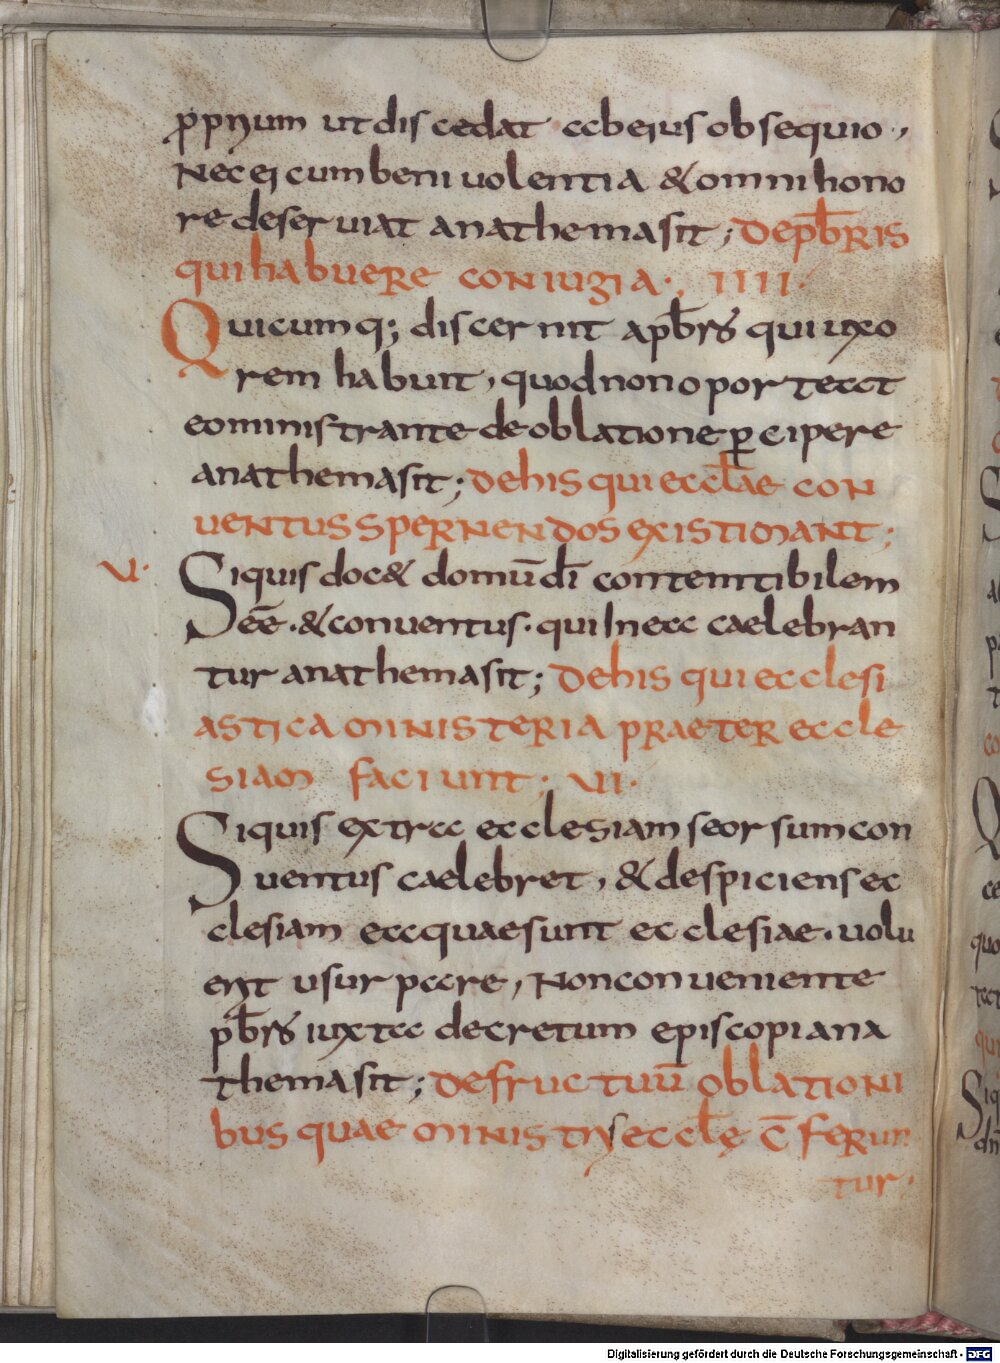 p̄ppiũm ut discedat ab eius obsequio,
Nec ei cum beniuolentia & omni hono
re deseruiat anathema sit; De pb̄ris
qui habuere coniugia·, IIII·
Quicumq; discernit a pb̄rŏ qui uxo
rem habuit, quod non oportect
eo ministrante de oblatione ꝑcipere
anathema sit; De his qui eccl̄ae con
uentus spernendos existimant;
V· Si quis doc& domūdī contemtibilem
eēe ·& conuentus· qui In ea caelebran
tur anathema sit; De his qui ecclesi
astica ministeria praeter eccle
siam faciunt; VI·
Si quis extra ecclesiam seorsum con
uentus caelebret, & despiciens ec
clesiam ea quae sunt ecclesiae· uolu
erit usurpare, Non conueniente
pb̄rŏ iuxta decretum episcopi ana
thema sit; De fructuū oblationi
bus quae ministrȳs eccl̄ę c̄ferun
tur·
Digitalisierung gefördert durch die Deutsche Forschungsgemeinschaft - DFG